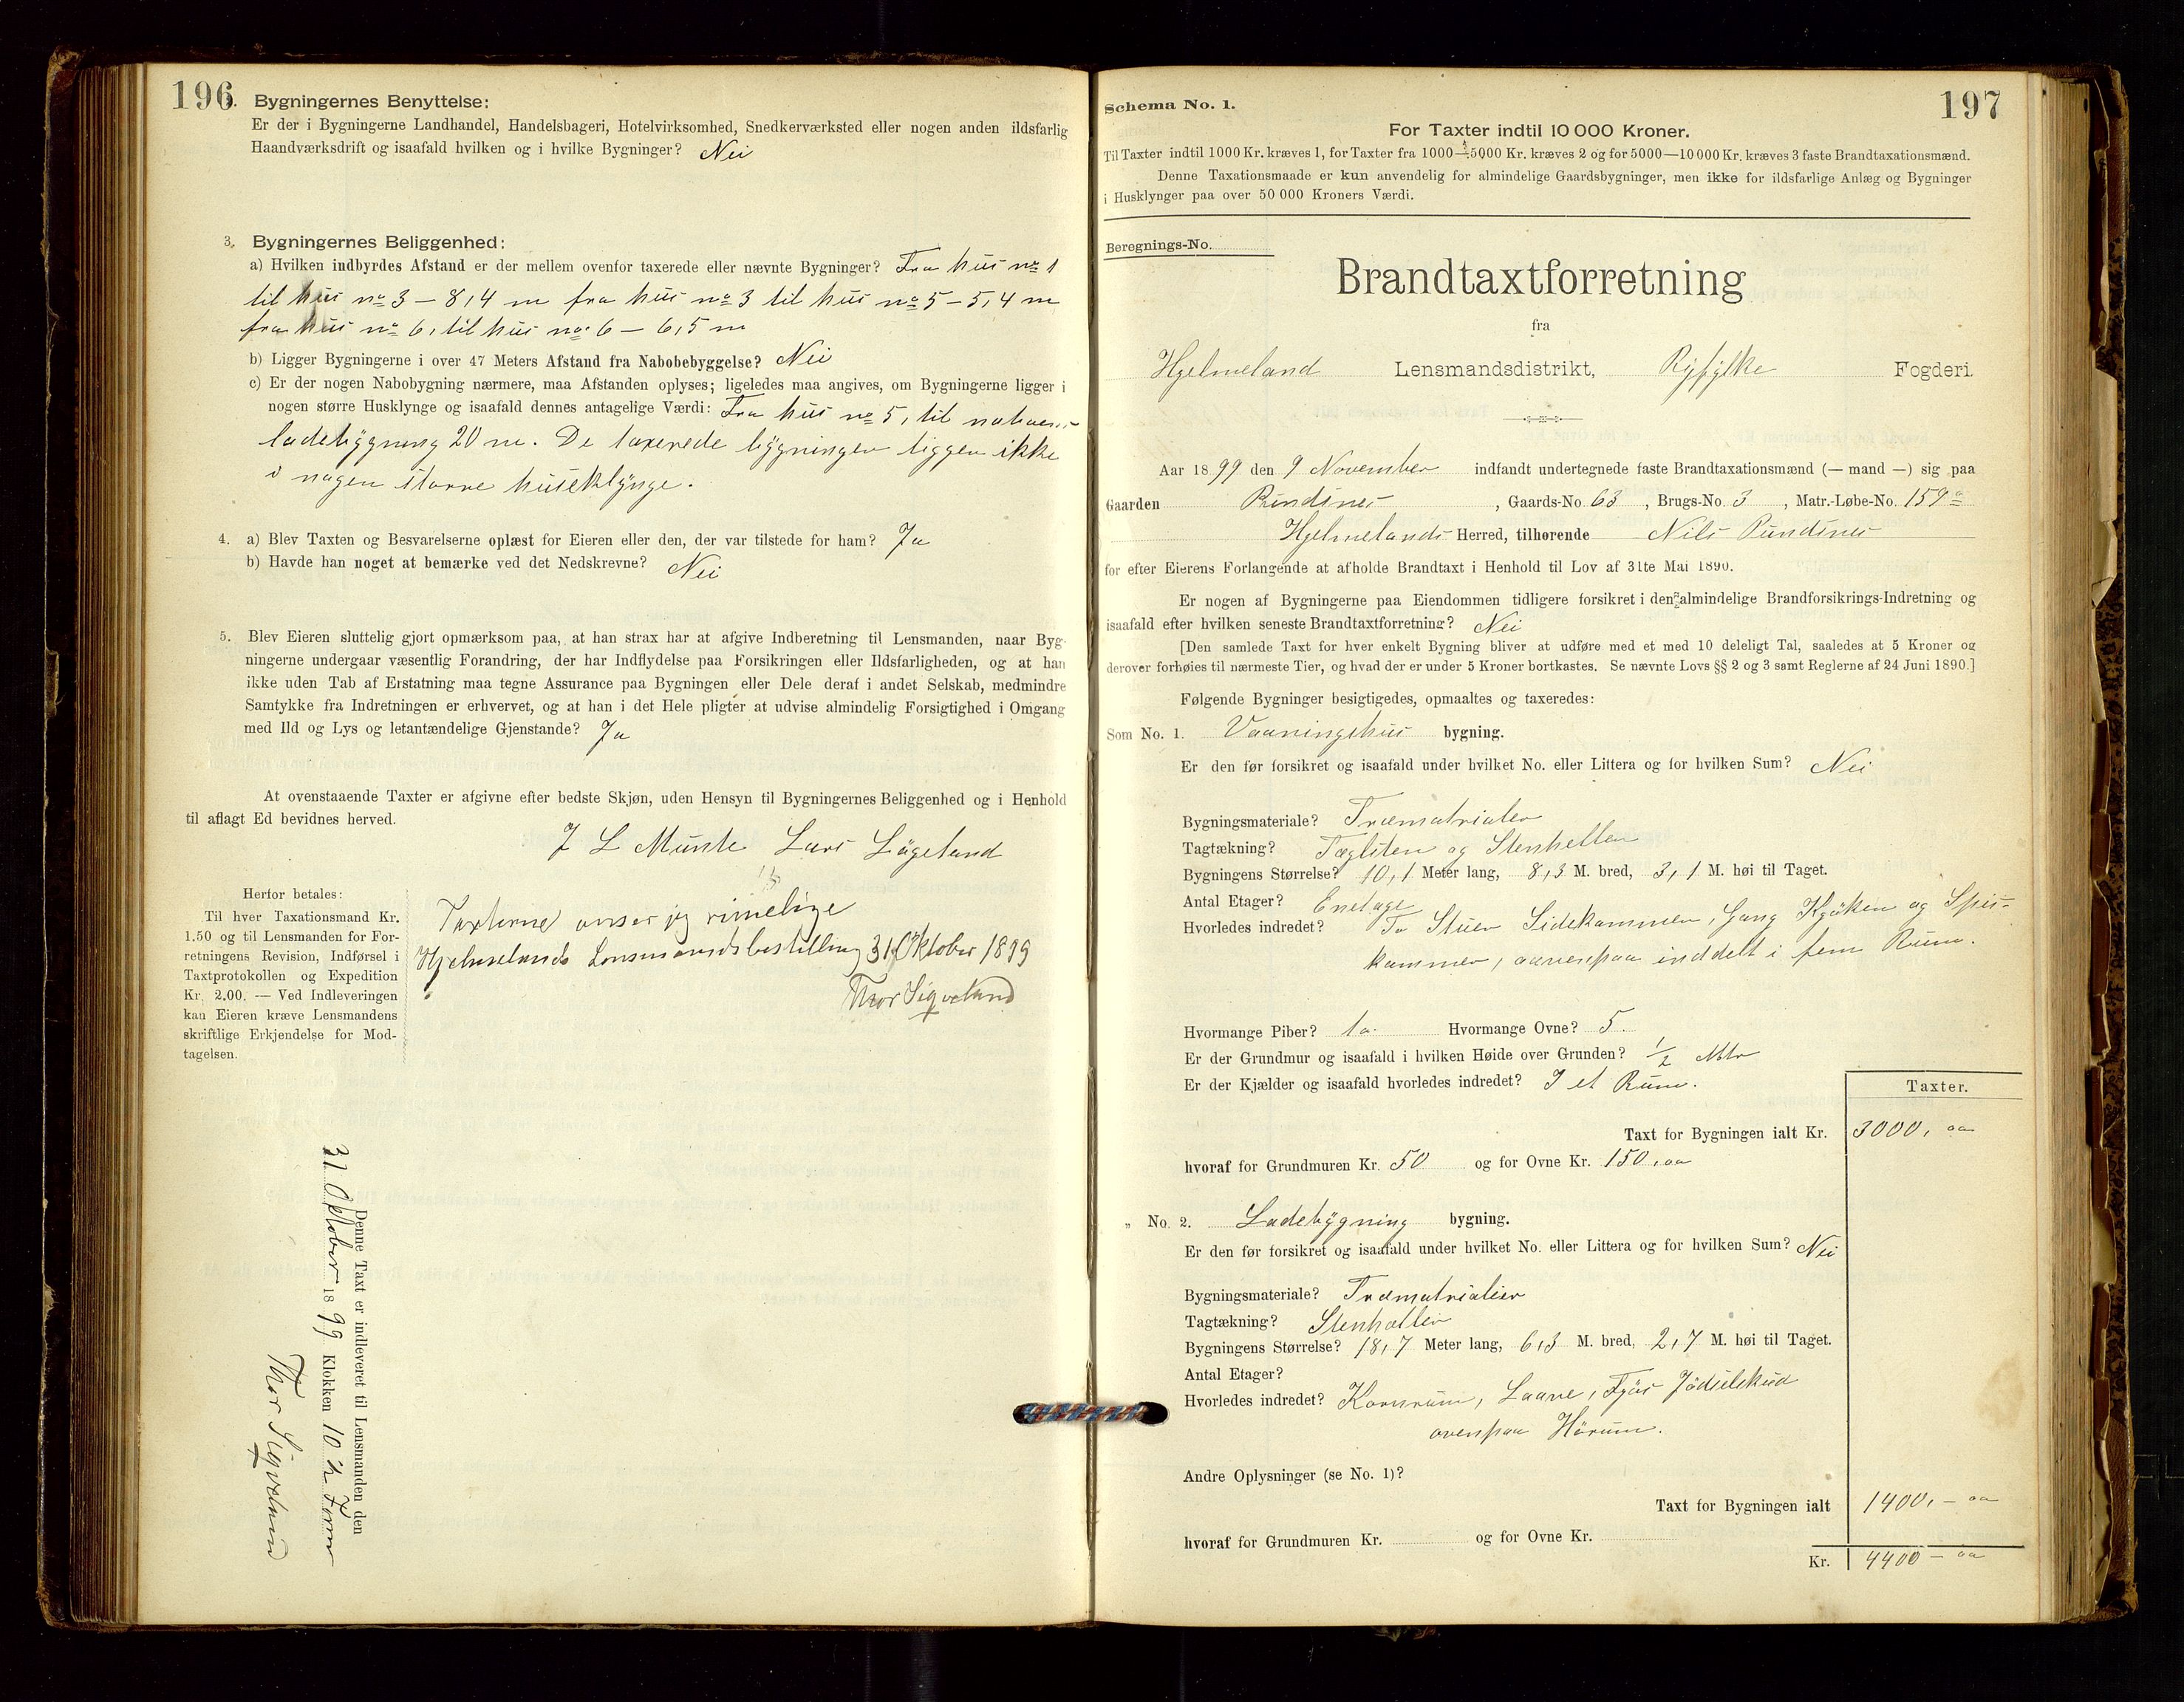 196
2. Bygningernes Benyttelse:
Er der i Bygningerne Landhandel, Handelsbageri, Hotelvirksomhed, Snedkerværksted eller nogen anden ildsfarlig
Haandværksdrift og isaafald hvilken og i hvilke Bygninger? Nei
3. Bygningernes Beliggenhed:
a) Hvilken indbyrdes Afstand er der mellem ovenfor taxerede eller nævnte Bygninger? Fra hus no 1
til hus no 3 – 8,4 m fra hus no 3 til hus no 5 – 5,4 m
fra hus no 6, til hus no 6 – 6,5 m
b) Ligger Bygningerne i over 47 Meters Afstand fra Nabobebyggelse? Nei
c) Er der nogen Nabobygning nærmere, maa Afstanden oplyses; ligeledes maa angives, om Bygningerne ligger i
nogen større Husklynge og isaafald dennes antagelige Værdi: Fra hus no 5, til naboens
ladebygning 20 m. De taxerede bygninger ligger ikke
i nogen større huseklynge.
4. a) Blev Taxten og Besvarelserne oplæst for Eieren eller den, der var tilstede for ham? Ja
b) Havde han noget at bemærke ved det Nedskrevne? Nei
5. Blev Eieren sluttelig gjort opmærksom paa, at han strax har at afgive Indberetning til Lensmanden, naar Byg-
ningerne undergaar væsentlig Forandring, der har Indflydelse paa Forsikringen eller Ildsfarligheden, og at han
ikke uden Tab af Erstatning maa tegne Assurance paa Bygningen eller Dele deraf i andet Selskab, medmindre
Samtykke fra Indretningen er erhvervet, og at han i det Hele pligter at udvise almindelig Forsigtighed i Omgang
med Ild og Lys og letantændelige Gjenstande? Ja
At ovenstaaende Taxter er afgivne efter bedste Skjøn, uden Hensyn til Bygningernes Beliggenhed og i Henhold
til aflagt Ed bevidnes herved.
J L Munte Lars Lägeland
Herfor betales:
Til hver Taxationsmand Kr.
1.50 og til Lensmanden for For-
retningens Revision, Indførsel i
Taxtprotokollen og Expedition
Kr. 2.00. — Ved Indleveringen
kan Eieren kræve Lensmandens
skriftlige Erkjendelse for Mod-
tagelsen.
Taxterne anser jeg rimelige
Hjelmelands Lensmandsbestilling 31 Oktober 1899
Thor Sigveland
Denne Taxt er indleveret til Lensmanden den
31 Oktober 1899 Klokken 10 ½ Form
Thor Sigveland
Schema No. 1.
197
For Taxter indtil 10 000 Kroner.
Til Taxter indtil 1000 Kr. kræves 1, for Taxter fra 1000—5000 Kr. kræves 2 og for 5000—10 000 Kr. kræves 3 faste Brandtaxationsmænd.
Denne Taxationsmaade er kun anvendelig for almindelige Gaardsbygninger, men ikke for ildsfarlige Anlæg og Bygninger
i Husklynger paa over 50 000 Kroners Værdi.
Beregnings-No.
Brandtaxtforretning
fra
Hjelmeland Lensmandsdistrikt, Ryfylke Fogderi.
Aar 1899 den 9 November indfandt undertegnede faste Brandtaxationsmænd (— mand —) sig paa
Gaarden Pundsnes, Gaards-No. 63, Brugs-No. 3, Matr.-Løbe-No. 159a
Hjelmelands Herred, tilhørende Nils Pundsnes
for efter Eierens Forlangende at afholde Brandtaxt i Henhold til Lov af 31te Mai 1890.
Er nogen af Bygningerne paa Eiendommen tidligere forsikret i den almindelige Brandforsikrings-Indretning og
isaafald efter hvilken seneste Brandtaxtforretning? Nei
[Den samlede Taxt for hver enkelt Bygning bliver at udføre med et med 10 deleligt Tal, saaledes at 5 Kroner og
derover forhøies til nærmeste Tier, og hvad der er under 5 Kroner bortkastes. Se nævnte Lovs §§ 2 og 3 samt Reglerne af 24 Juni 1890.]
Følgende Bygninger besigtigedes, opmaaltes og taxeredes:
Som No. 1. Vaaningshus bygning.
Er den før forsikret og isaafald under hvilket No. eller Littera og for hvilken Sum? Nei
Bygningsmateriale? Træmatrialer
Tagtækning? Tæglsten og Stenheller
Bygningens Størrelse? 10,1 Meter lang, 8,3 M. bred, 3,1 M. høi til Taget.
Antal Etager? Enetage
Hvorledes indredet? To Stuer Sidekammer, Gang Kjøken og Spis-
kammer, ovenpaa inddelt i fem Rum.
Hvormange Piber? 1a. Hvormange Ovne? 5.
Er der Grundmur og isaafald i hvilken Høide over Grunden? 1/2 Mtr
Er der Kjælder og isaafald hvorledes indredet? I et Rum.
Taxter.
Taxt for Bygningen ialt Kr. 3000, aa
hvoraf for Grundmuren Kr. 50 og for Ovne Kr. 150, aa
" No. 2. Ladebygning bygning.
Er den før forsikret og isaafald under hvilket No. eller Littera og for hvilken Sum? Nei
Bygningsmateriale? Træmatrialier
Tagtækning? Stenheller
Bygningens Størrelse? 18,7 Meter lang, 6,3 M. bred, 2,7 M. høi til Taget.
Antal Etager?
Hvorledes indredet? Kornrum, Laave, Fjøs Jødselskud
ovenpaa Hørum.
Andre Oplysninger (se No. 1)?
Taxt for Bygningen ialt 1400, – aa
hvoraf for Grundmuren Kr. og for Ovne Kr.
Kr. 4400 – aa